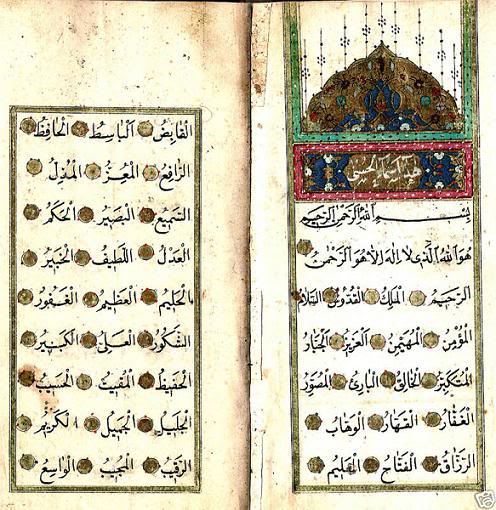 هذه اسماء الحسنى
بِسْمِ اللهِ الرَّحْمٰنِ الرَّحِيمِ
هُوَ اللهُ الَّذِي لَا اِلٰهَ اِلَّا هُوَ الرَّحْمٰنُ
الرَّحِيمُ الْمَلِكُ الْقُدُّوسُ السَّلَامُ
الْمُؤْمِنُ الْمُهَيْمِنُ الْعَزِيزُ الْجَبَّارُ
الْمُتَكَبِّرُ الْخَالِقُ الْبَارِئُ الْمُصَوِّرُ
الْغَفَّارُ الْقَهَّارُ الْوَهَّابُ
الرَّزَّاقُ الْفَتَّاحُ الْعَلِيمُ
الْقَابِضُ الْبَاسِطُ الْحَافِظُ
الرَّافِعُ الْمُعِزُّ الْمُذِلُّ
السَّمِيعُ الْبَصِيرُ الْحَكَمُ
الْعَدْلُ اللَّطِيفُ الْخَبِيرُ
الْحَلِيمُ الْعَظِيمُ الْغَفُورُ
الشَّكُورُ الْعَلِيُّ الْكَبِيرُ
الْحَفِيظُ الْمُقِيتُ الْحَسِيبُ
الْجَلِيلُ الْجَمِيلُ الْكَرِيمُ
الرَّقِيبُ الْمُجِيبُ الْوَاسِعُ